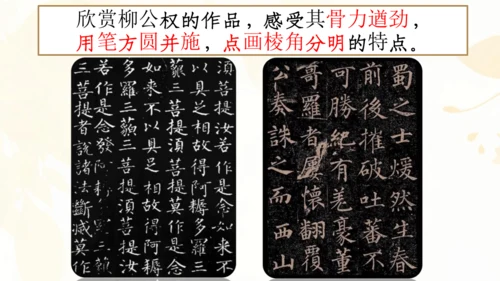 欣赏柳公权的作品，感受其骨力遒劲，
用笔方圆并施，点画棱角分明的特点。
須菩提汝若作是念如来不
以具足相故得阿耨多羅三
藐三菩提須菩提莫作是念
如来不以具足相故得阿耨
多羅三藐三菩提須菩提汝
若作是念發阿耨
三菩提者說諸法斷滅莫作
蜀之士煖然生春
前後摧破吐蕃不
可勝紀有羌豪董
哥羅者屢懷翻覆
公奏誅之而西山